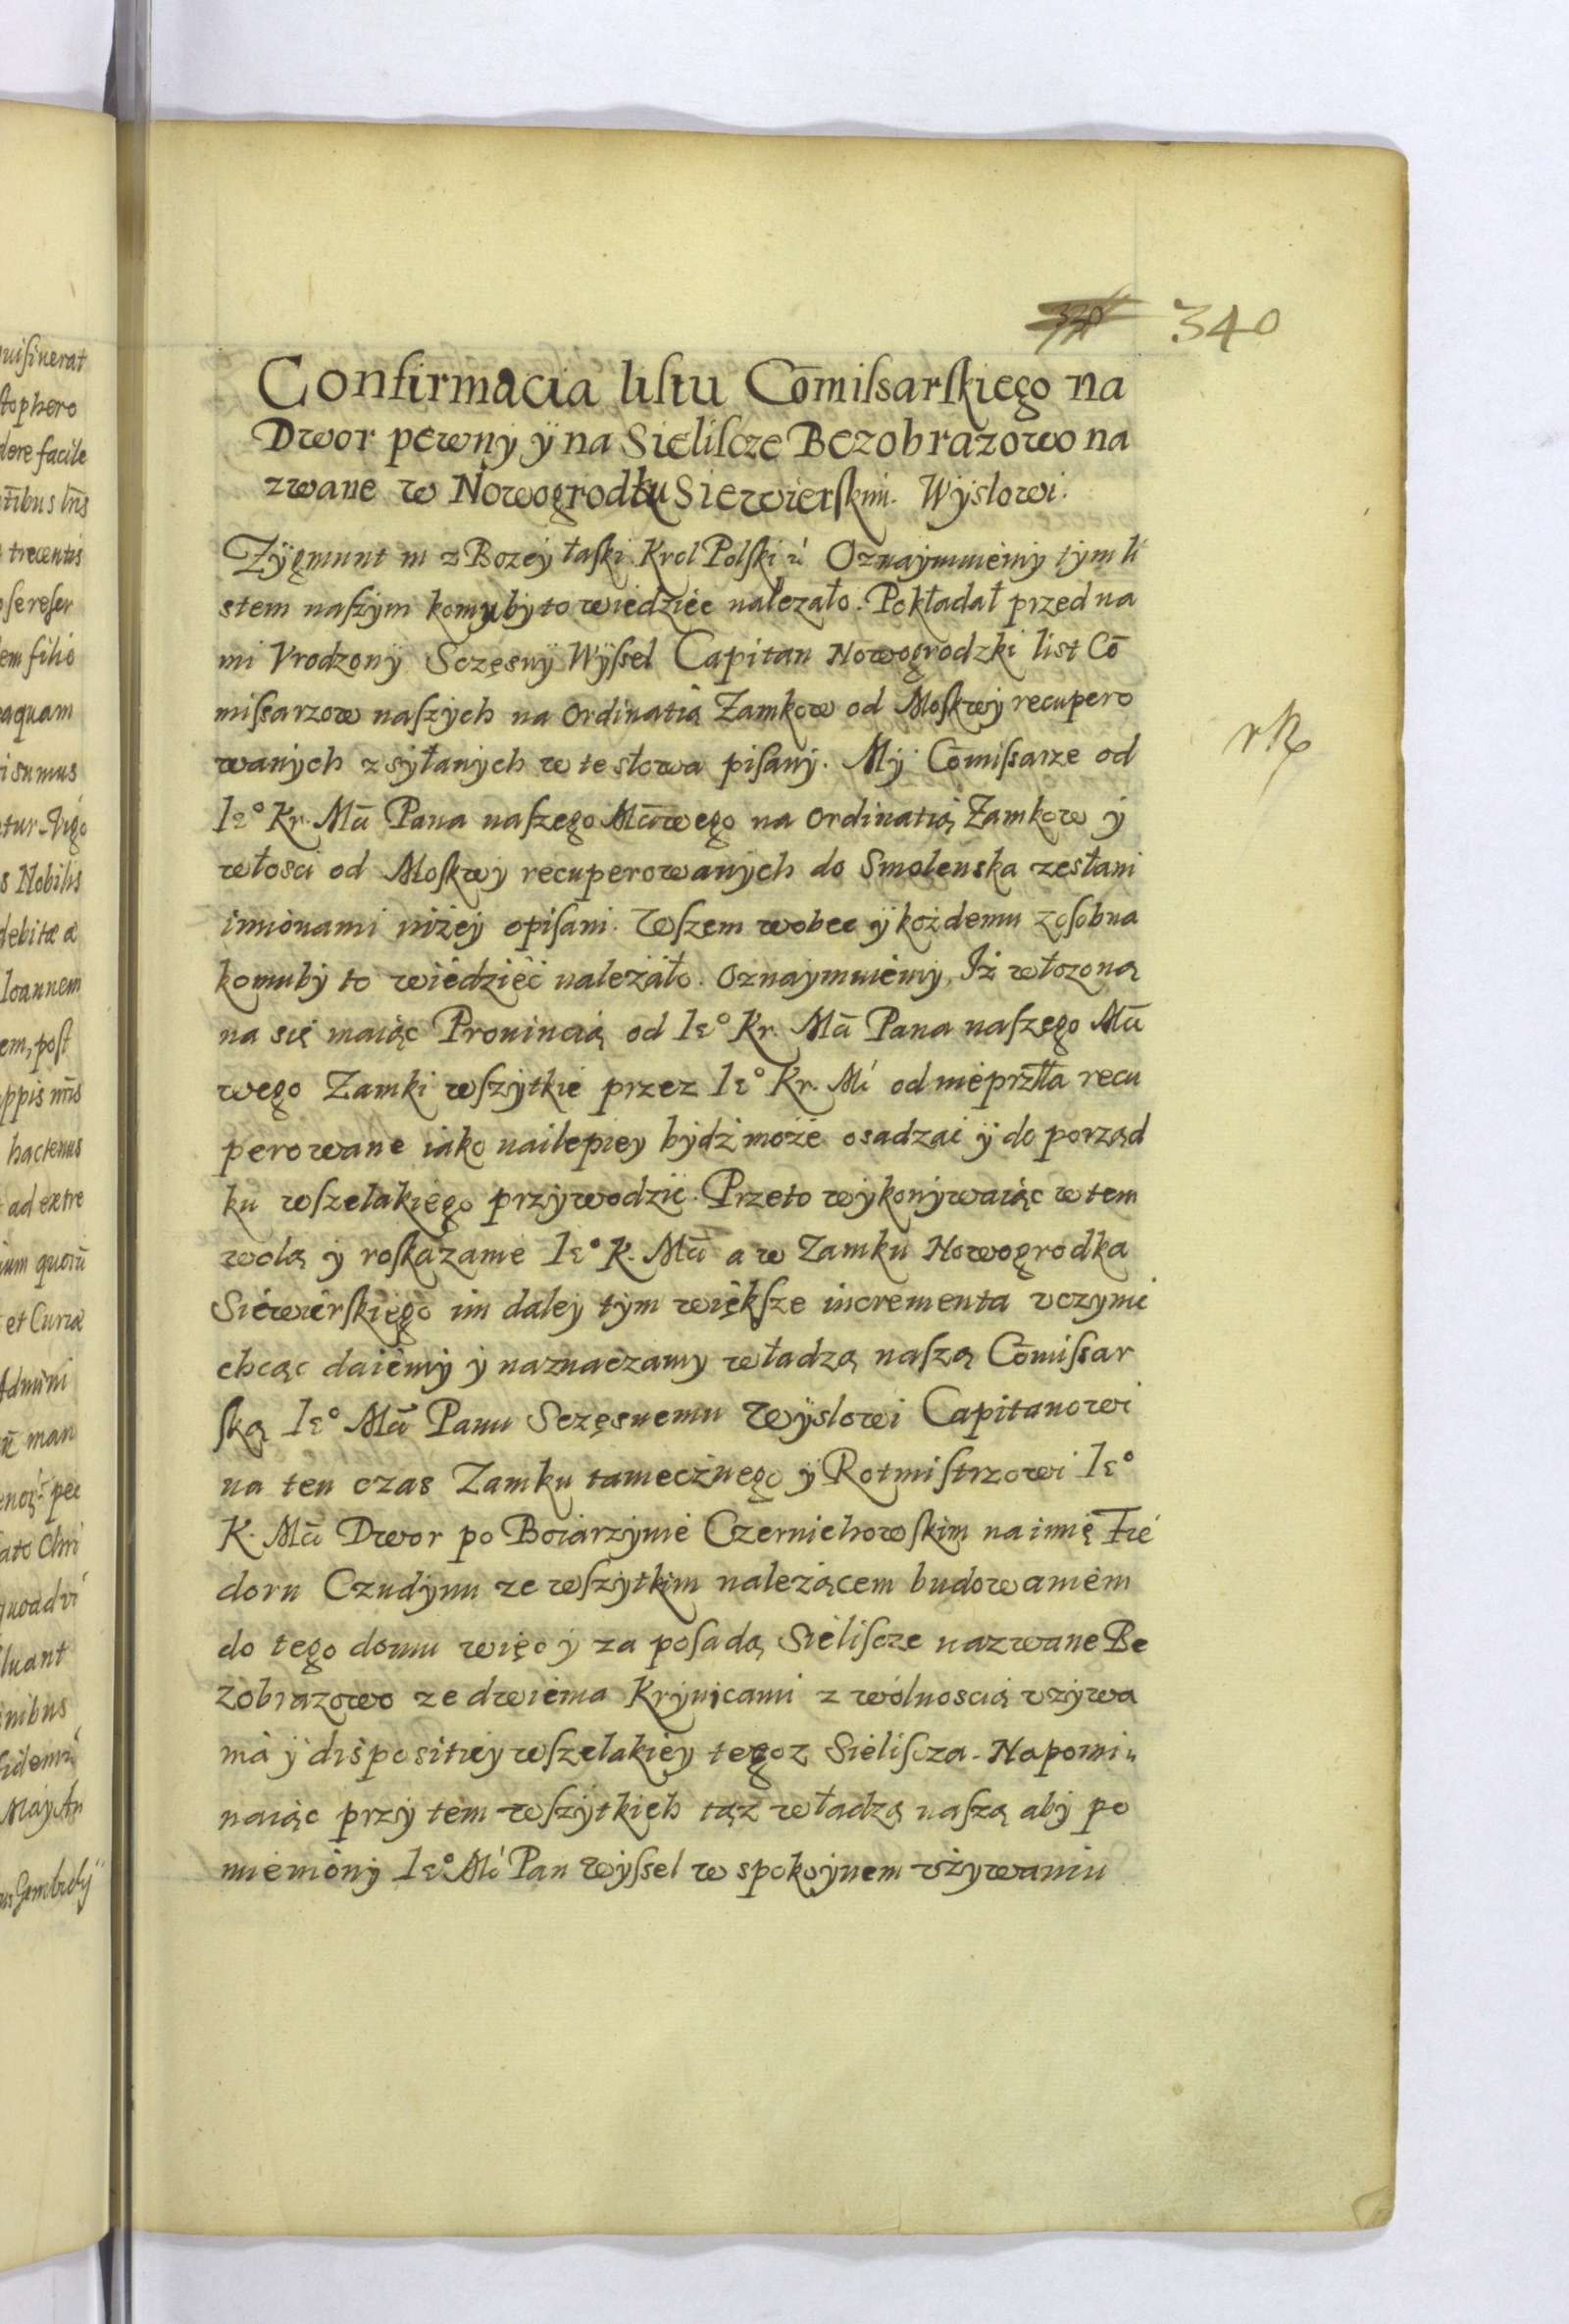 340
Confirmacia listu Cōmissarskiego na
Dwor pewny ÿ na Sieliscze Bezobrazowo na
zwane w Nowogrodku Siewierskim. Wyslowi.
Zygmunt III z Bozey łaski Krol Polski Oznaymuiemy tym li
stem naszym komu by to wiedziec nalezało. Pokładał przed na
mi Vrodzony Sczęsny Wyssel Capitan Nowogrodzki list Cō
missarzow naszych na Ordinatią Zamkow od Moskwy recupero
wanych zsyłanych w te słowa pisany. My Cōmissarze od
Ie° Kr. Mci Pana naszego Mciwego na Ordinatią Zamkow y
włosci od Moskwy recuperowanych do Smolenska zesłani
imionami niżey opisani. Wszem wobec ÿ kożdemu zosobna
komuby to wiedzięć należało. Oznaymuiemy, Iż włozoną
na się maiąc Prouincią od Ie° Kr. Mci Pana naszego Mci
wego Zamki wszytkie przez Ie° Kr. Mć od nieprzłla recu
perowane iako nailepiey bydź może osadzać ÿ do porząd
ku wszelakiego przywodzić. Przeto wykonywaiąc w tem
wolą y roskazanie Ie° K. Mci a w Zamku Nowogrodka
Siewierskiego im daley tym większe incrementa vczynić
chcąc daiemy y naznaczamy władzą naszą Cōmissar
ską Ie° Mci Panu Sczęsnemu Wyslowi Capitanowi
na ten czas Zamku tamecznego ÿ Rotmistrzowi Ie°
K. Mci Dwor po Boiarzynie Czerniehowskim na imię Fie
doru Czudynu ze wszytkim należącem budowaniem
do tego domu więc y za posadą Sieliscze nazwane Be
zobrazowo ze dwiema Krynicami z wolnoscią vżywa
nia ÿ dispositiey wszelakiey tegoz Sieliscza. Napomi„
naiąc przy tem wszytkich tąz władzą naszą aby po
mieniony Ie° Mć Pan Wyssel w spokoynem vżywaniu